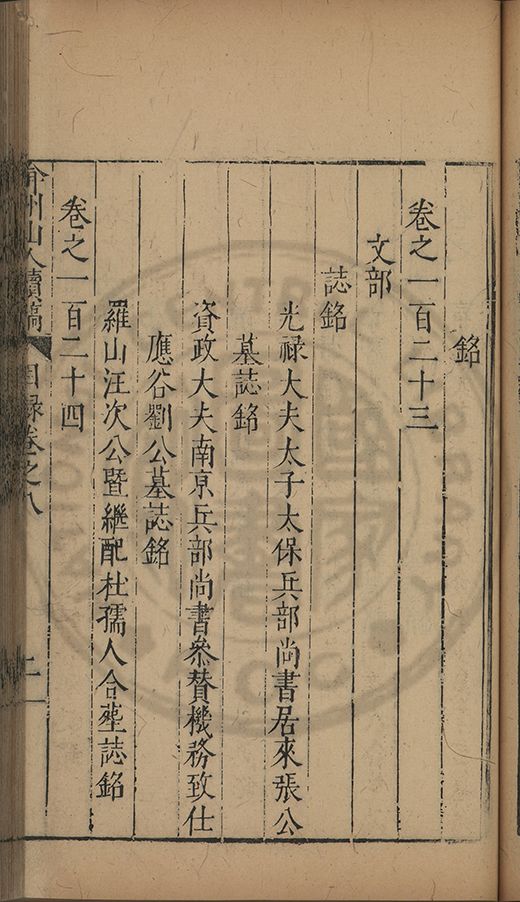 銘
卷之一百二十三
文部
誌銘
光禄大夫太子太保兵部尚書居來張公
墓誌銘
資政大夫南京兵部尚書叅贊機務致仕
應谷劉公墓誌銘
羅山汪次公暨繼配杜孺人合塟誌銘
卷之一百二十四
弇州山人續稿 目録卷之八